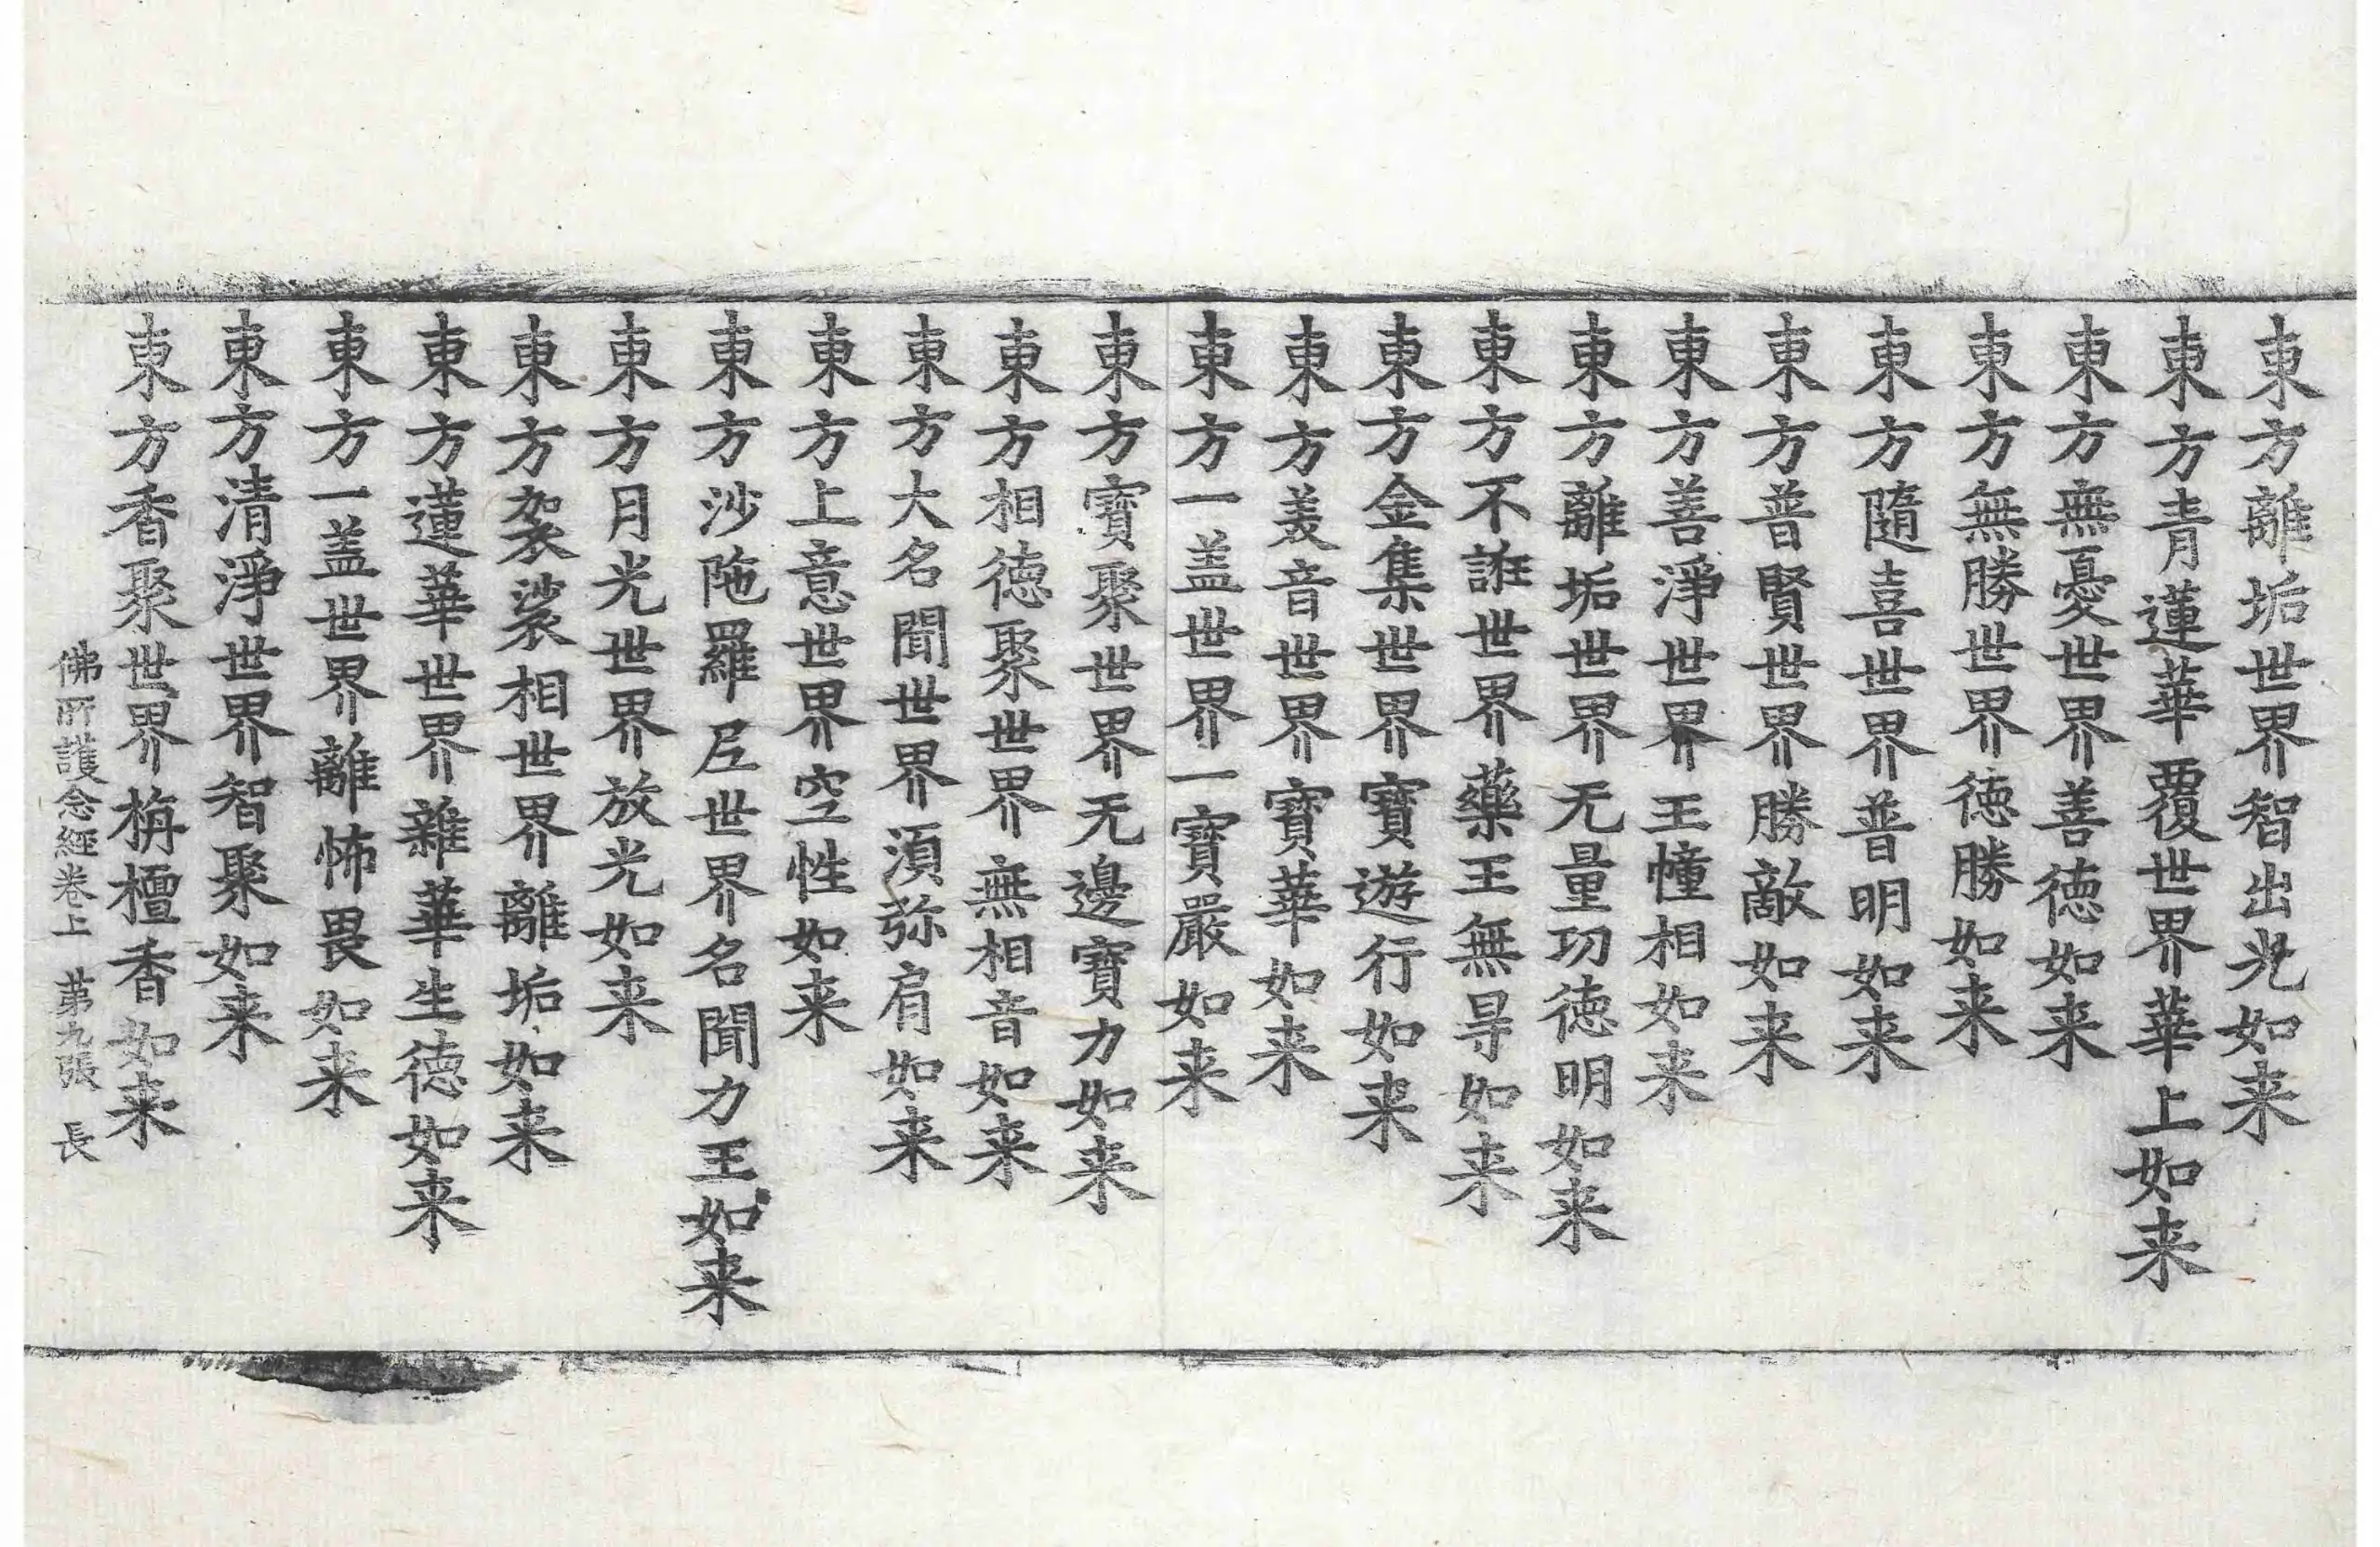 東方離垢世界智出光如来
東方青蓮華覆世界華上如来
東方無憂世界善徳如来
東方無勝世界徳勝如来
東方隨喜世界普明如来
東方普賢世界勝敵如来
東方善淨世界王幢相如来
東方離垢世界无量功徳明如来
東方不誑世界藥王無㝵如来
東方金集世界寶遊行如来
東方美音世界寶華如来
東方一盖世界一寶嚴如来
東方寶聚世界无邊寶力如来
東方相徳聚世界無相音如来
東方大名聞世界須弥肩如来
東方上意世界空性如来
東方沙陁羅𡰱世界名聞力王如来
東方月光世界放光如来
東方袈裟相世界離垢如来
東方蓮華世界雜華生徳如来
東方一盖世界離怖畏如来
東方清淨世界智聚如来
東方香聚世界栴檀香如来
佛所護念經卷上　苐九張　長